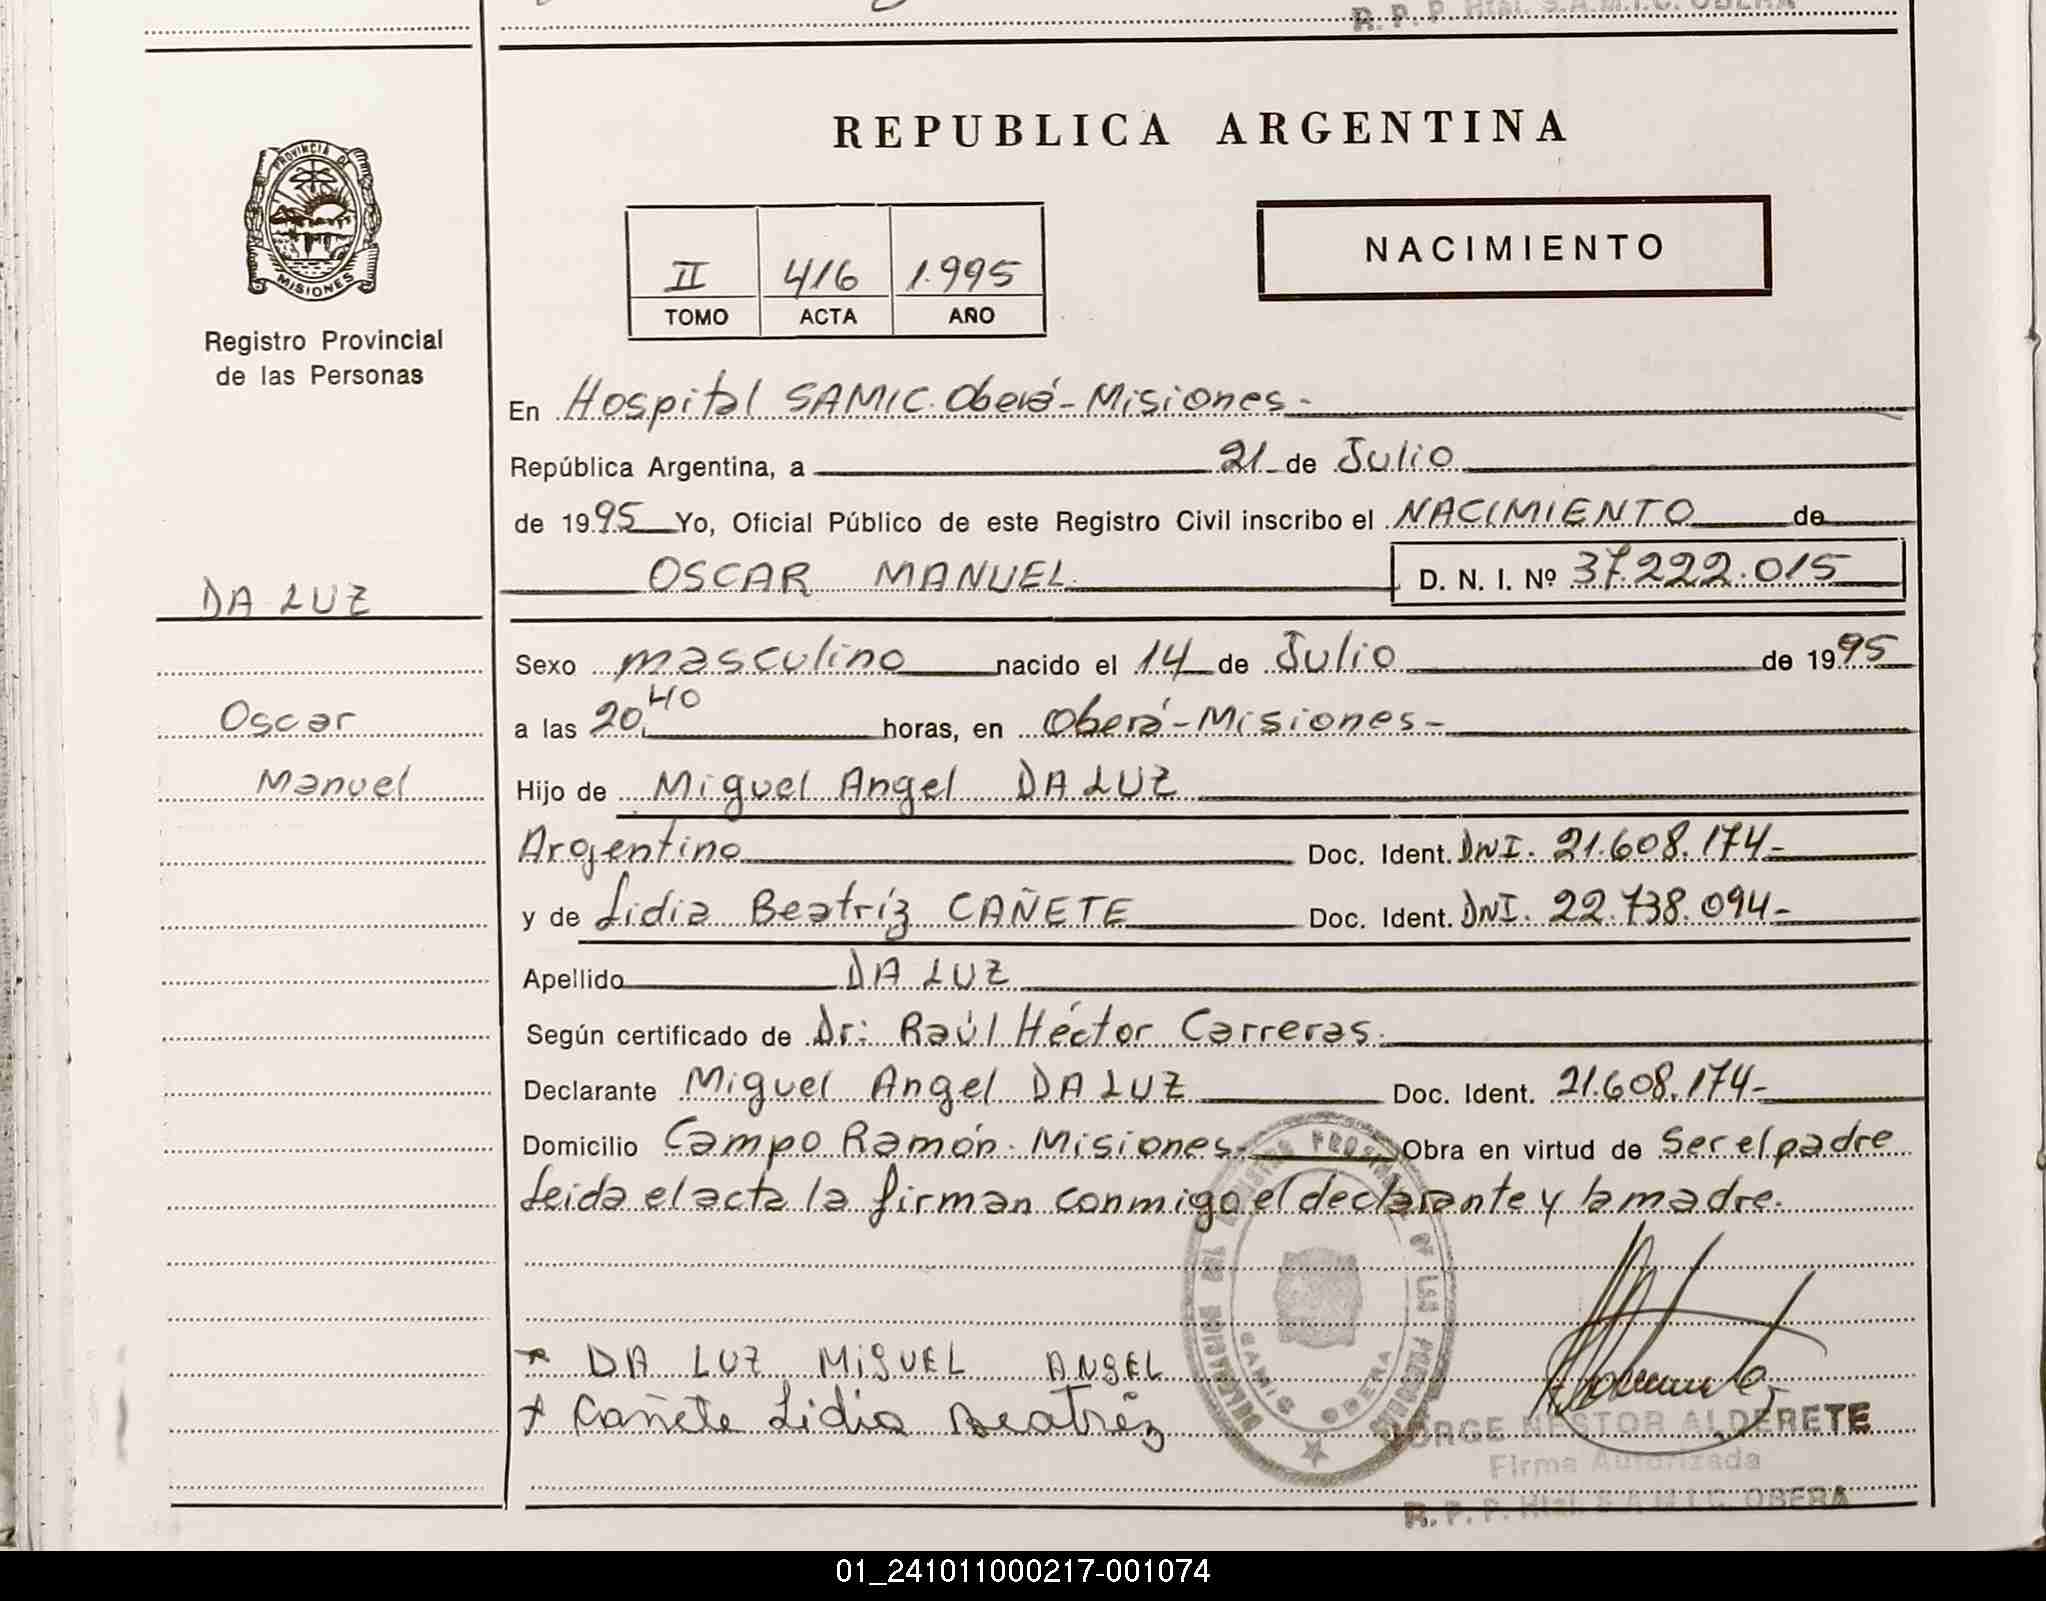 R. P. P. Htal. S.A.M.I.C. OBERA
PROVINCIA DE
MISIONES
Registro Provincial
de las Personas
REPUBLICA ARGENTINA
II 416 1.995
TOMO ACTA AÑO
NACIMIENTO
En Hospital SAMIC. Oberá - Misiones -
República Argentina, a 21 de Julio
de 1995 Yo, Oficial Público de este Registro Civil inscribo el NACIMIENTO de
OSCAR MANUEL D. N. I. Nº 37.222.015
DA LUZ
Sexo masculino nacido el 14 de Julio de 1995
Oscar
a las 20,40 horas, en Oberá - Misiones -
Manuel
Hijo de Miguel Angel DA LUZ
Argentino Doc. Ident. DNI. 21.608.174-
y de Lidia Beatríz CAÑETE Doc. Ident. DNI. 22.738.094-
Apellido DA LUZ
Según certificado de Dr: Raúl Héctor Carreras.
Declarante Miguel Angel DA LUZ Doc. Ident. 21.608.174-
Domicilio Campo Ramón - Misiones - Obra en virtud de Ser el padre
Leida el acta la firman conmigo el declarante y la madre.
DA LUZ MiGUEL ANGEL
Cañete Lidia Beatríz
SAMIC OBERA
JORGE NESTOR ALDERETE
Firma Autorizada
R. P. P. Htal. S.A.M.I.C. OBERA
01_241011000217-001074